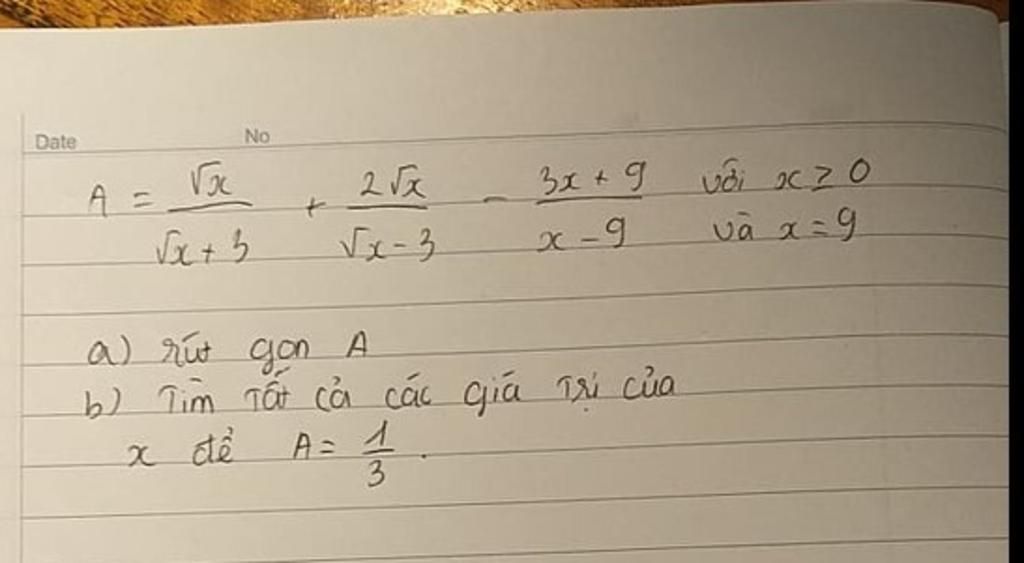 Date No
A = √x/(√x + 3) + 2√x/(√x - 3) - (3x + 9)/(x - 9) với x ≥ 0
và x = 9
a) rút gọn A
b) Tìm tất cả các giá trị của
x để A = 1/3.